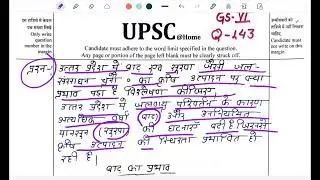 इस भाग में कुछ न लिखें
Only write question number in this margin.
UPSC
@Home
Candidate must adhere to the word limit specified in the question.
Any page or portion of the page left blank must be clearly struck off.
GS-VI
Q-143
write on this margin.
प्रश्न-
उत्तर प्रदेश में बाढ़ एवं सूखा जैसी जल-
संसाधन का कृषि उत्पादन पर क्या
प्रभाव पड़ा है विश्लेषण कीजिए।
उत्तर प्रदेश में जलवायु परिवर्तन के कारण
अत्यधिक वर्षा (बाढ़) और अनियमित
मानसून (सूखा) की घटनाएं बढ़ी है जिससे
कृषि उत्पादन की स्थिरता प्रभावित हो
रही है।
बाढ़ का प्रभाव